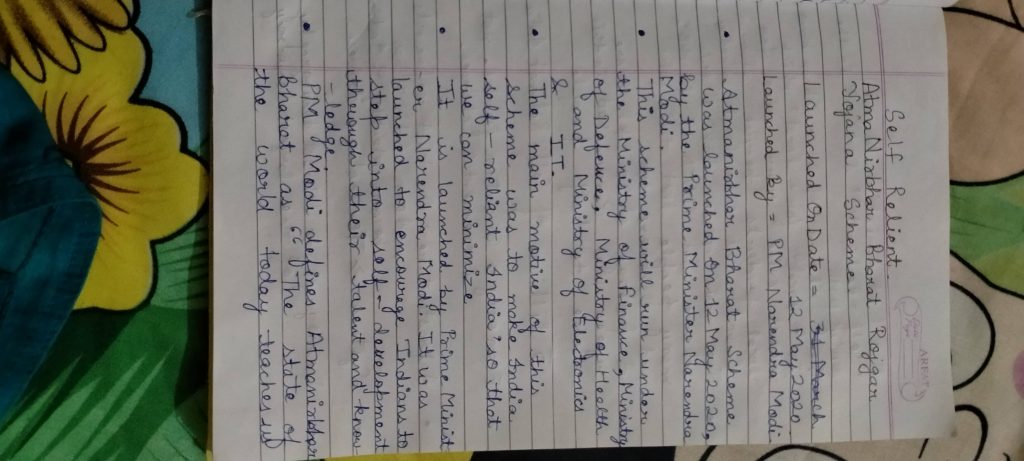 Self Relient
AtmaNirbhar Bharat Rojgar
Yojana Scheme
Launched On Date = 31 March
12 May 2020
Launched By = PM Narendra Modi
• Atmanirbhar Bharat Scheme
was launched on 12 May 2020,
by the Prime Minister Narendra
Modi.
• This scheme will run under
the Ministry of Finance, Ministry
of Defence, Ministry of Health
& and Ministry of Electronics
& IT.
• The main motive of this
scheme was to make India
self-relient India so that
we can minimize
• It is launched by Prime Minist
er Narendra Modi. It was
launched to encourage Indians to
step into self-development
through their talent and know
-ledge.
• PM Modi defines Atmanirbhar
Bharat as "The state of
the world today teaches us